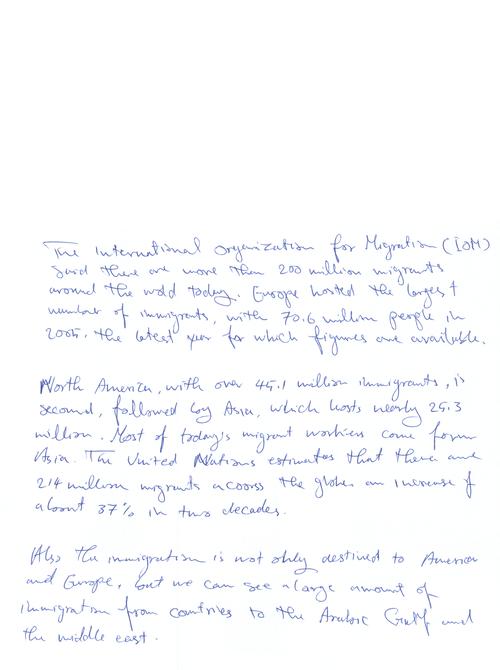 The International Organization for Migration (IOM)
Said there are more than 200 million migrants
around the wold today. Europe hosted the largest
number of immigrants, with 70.6 million people in
2005, the latest year for which figures are available.
North America, with over 45.1 million immigrants, is
second, followed by Asia, which hosts nearly 25.3
million. Most of today's migrant workers come form
Asia. The United Nations estimates that there are
214 million migrants acoorss the globe, an increase of
about 37% in two decades.
Also the immigration is not only destined to America
and Europe, but we can see a large amount of
immigration from contries to the Arabic Gulf and
the middle east.